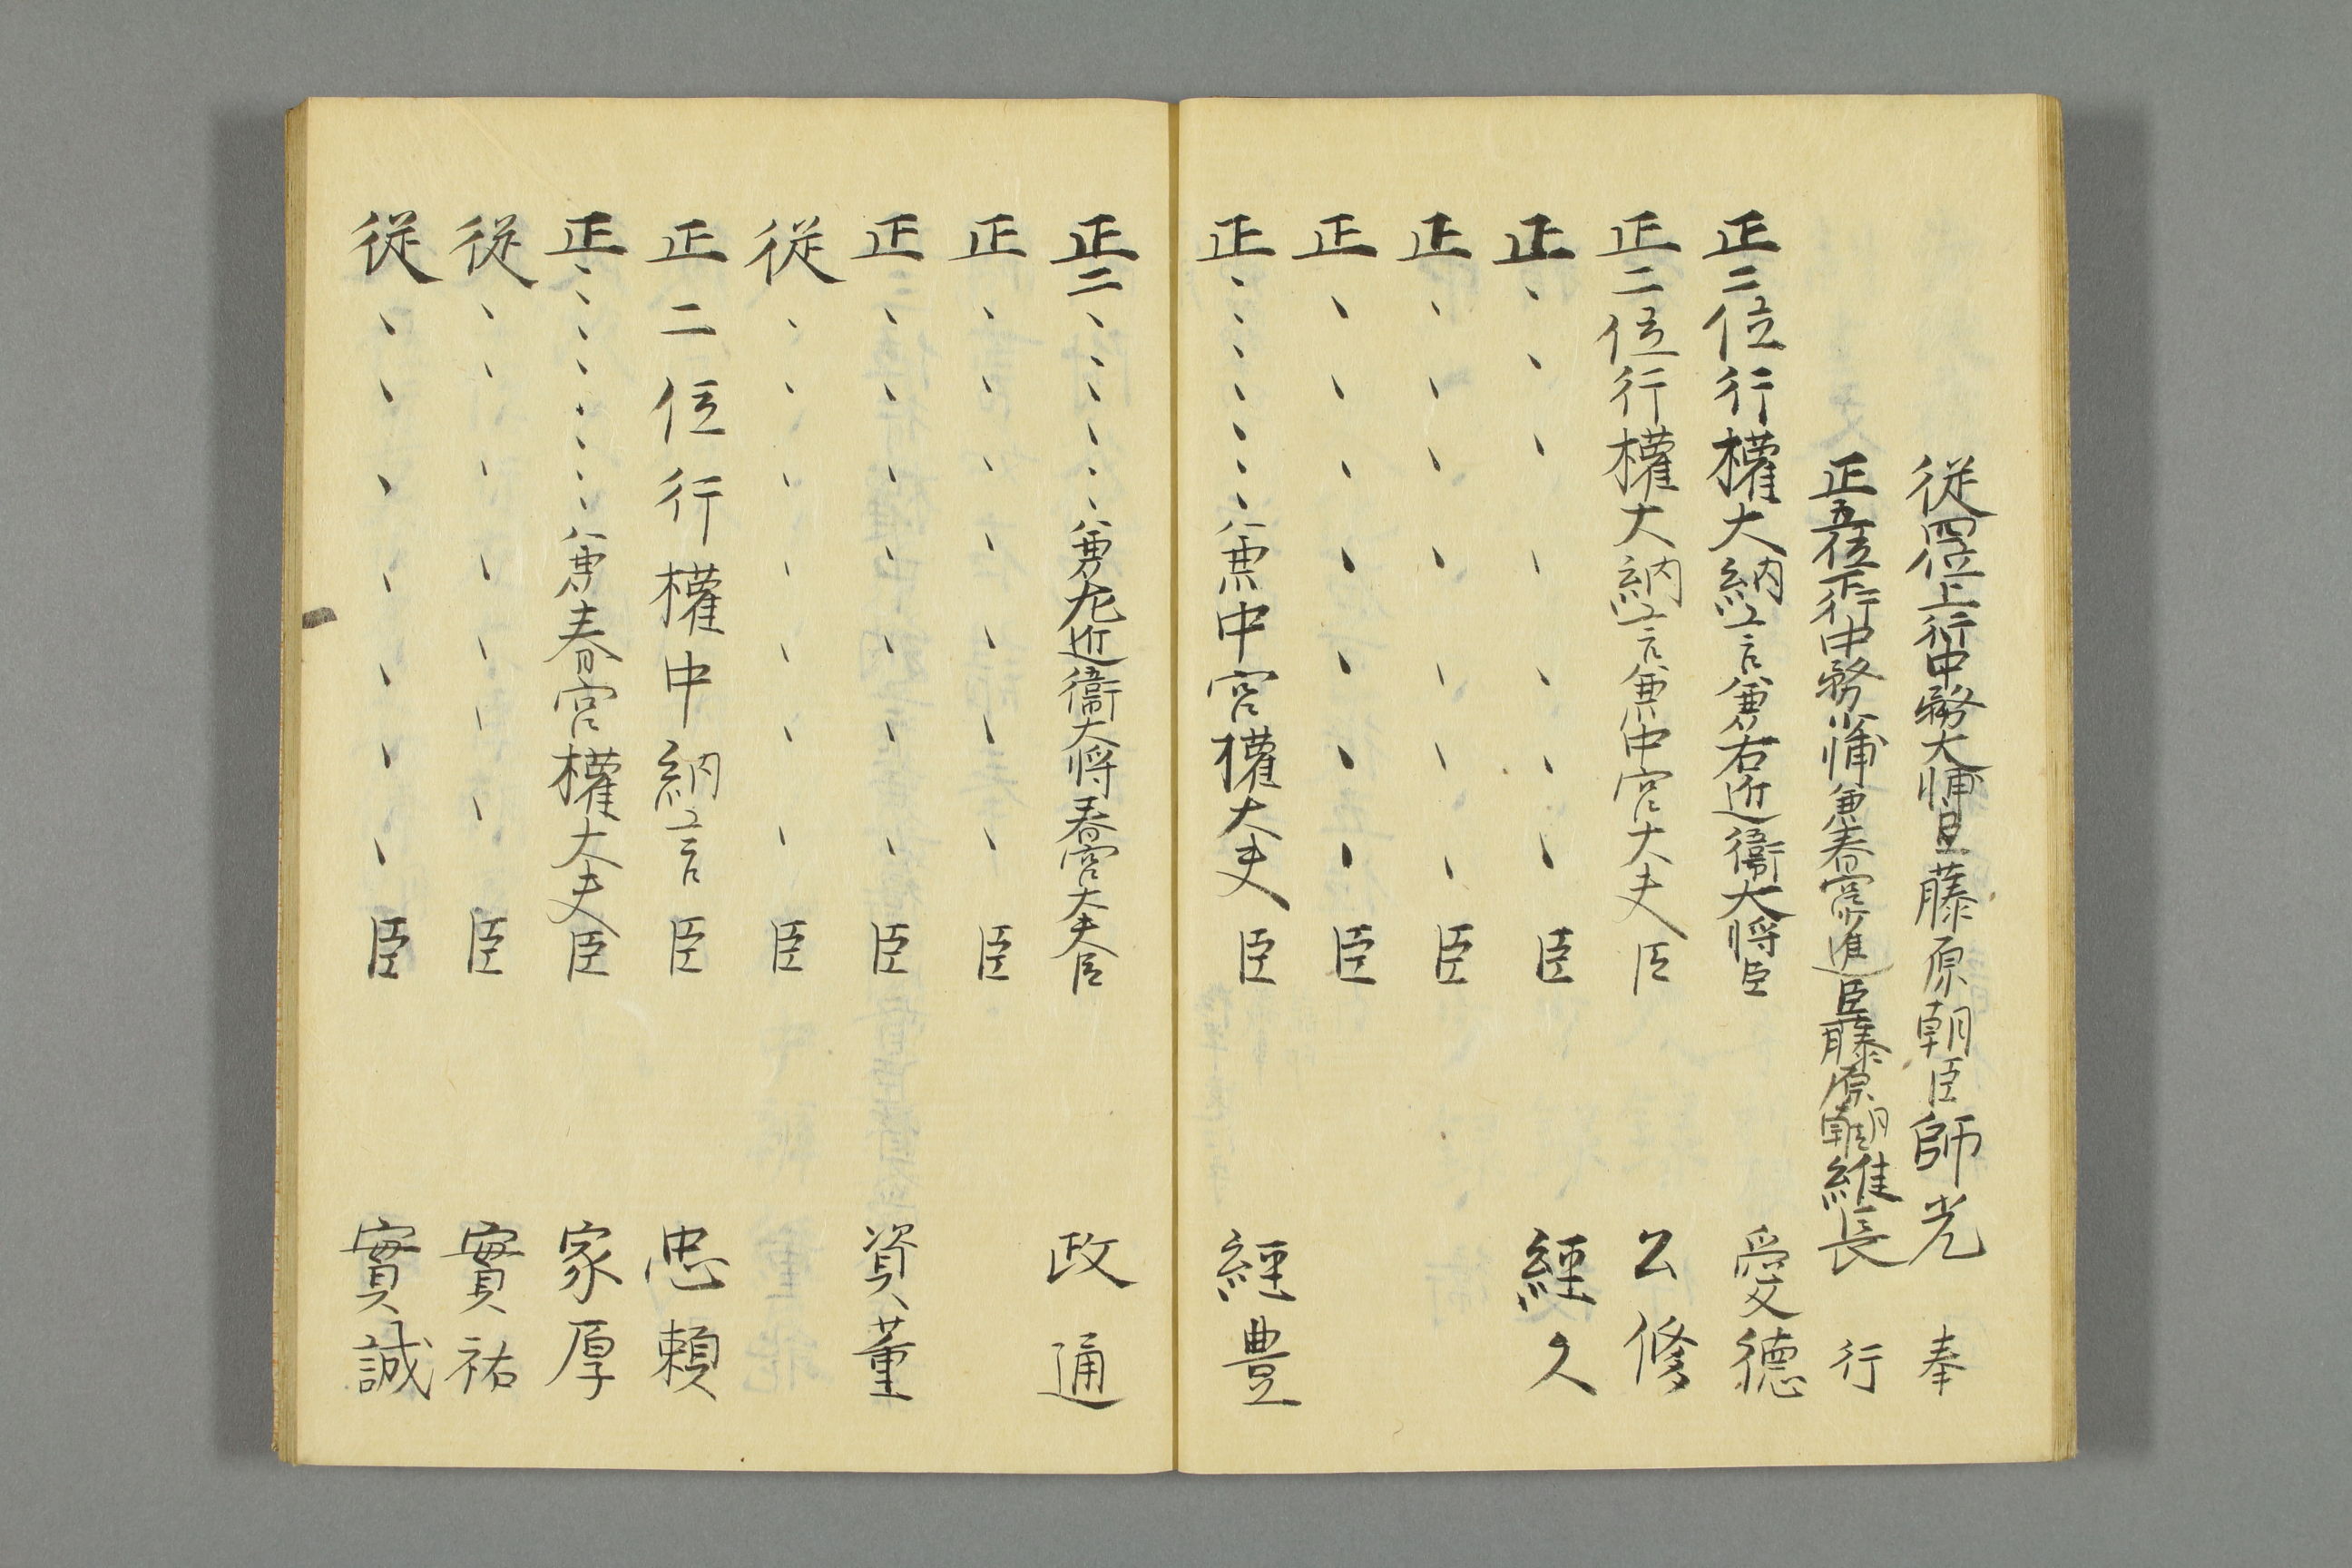 従四位上行中務大輔臣藤原朝臣師光 奉
正五位下行中務少輔兼春宮少進臣藤原朝臣維長 行
正二位行權大納言兼右近衞大将臣 愛德
正二位行權大納言兼中宮大夫臣 公修
正、、、、、、、臣 經久
正、、、、、、、臣
正、、、、、、、臣
正、、、、、、、兼中宮權大夫臣 經豊
正二、、、、、、、兼左近衞大将春宮大夫臣 政通
正、、、、、、、臣
正、、、、、、、臣 資董
従、、、、、、、臣
正二位行權中納言臣 忠頼
正、、、、、、、兼春宮權大夫臣 家厚
従、、、、、、、臣 實祐
従、、、、、、、臣 實誠